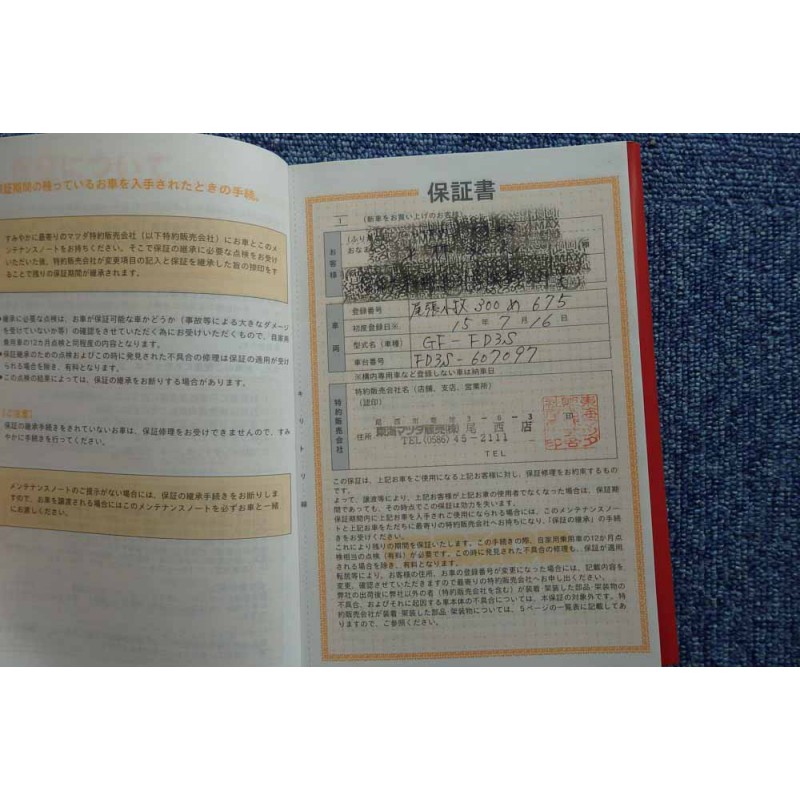 保証期間の残っているお車を入手されたときの手続。
すみやかに最寄りのマツダ特約販売会社(以下特約販売会社)にお車とこのメ
ンテナンスノートをお持ちください。そこで保証の継承に必要な点検をお受け
いただいた後、特約販売会社が変更項目の記入と保証を継承した旨の捺印をす
ることで残りの保証期間が継承されます。
●継承に必要な点検は、お車が保証可能な車かどうか(事故等による大きなダメージ
を受けていないか等)の確認をさせていただく為にお受けいただくもので、自家用
乗用車の12カ月点検と同程度の内容となります。
●保証継承のための点検およびこの時に発見された不具合の修理は保証の適用が受け
られる場合を除き、有料となります。
●この点検の結果によっては、保証の継承をお断りする場合があります。
(ご注意)
保証の継承手続きをされていないお車は、保証修理をお受けできませんので、すみ
やかに手続きを行ってください。
メンテナンスノートのご提示がない場合には、保証の継承手続きをお断りしま
すので、お車を譲渡される場合にはこのメンテナンスノートを必ずお車と一緒
にお渡しください。
キリトリ線
保証書
1 (新車をお買い上げのお客様)
お客様
車両
登録番号 尾張小牧 300 め 675
初度登録日※ 15 年 7 月 16 日
型式名(車種) GF-FD3S
車台番号 FD3S-607097
※構内専用車など登録しない車は納車日
特約販売会社
特約販売会社名(店舗、支店、営業所)
(認印)
1-6-3
東海マツダ販売(株) 尾西店
住所
TEL(0586)45-2111
TEL
印
この保証は、上記お車をご使用になる上記お客様に対し、保証修理をお約束するもの
です。
よって、譲渡等により、上記お客様が上記お車の使用者でなくなった場合は、保証期
間であっても、その時点でこの保証は効力を失います。
保証期間内に上記お車を入手されご使用になられる場合には、このメンテナンスノー
トと上記お車をただちに最寄りの特約販売会社へお持ちになり、「保証の継承」の手続
きをお受けください。
これにより残りの期間を保証いたします。この手続きの際、自家用乗用車の12か月点
検相当の点検(有料)が必要です。この時に発見された不具合の修理も、保証が適用
される場合を除き、有料となります。
転居等により、お客様の住所、お車の登録番号が変更になった場合には、記載内容を
変更、確認させていただきますので最寄りの特約販売会社へお申し出ください。
弊社の出荷後に弊社以外の者(特約販売会社を含む)が装着・架装した部品・架装物の
不具合、およびそれに起因する車本体の不具合については、本保証の対象外です。特
約販売会社が装着・架装した部品・架装物については、5ページの一覧表に記載してあ
りますので、ご参照ください。